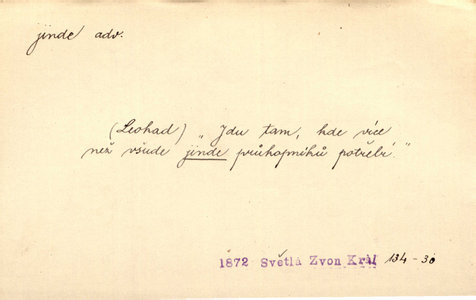 jinde adv.
(Leohad) „Jdu tam, kde více
než všude jinde průkopníků potřebí."
1872 Světlá Zvon Král 134-30